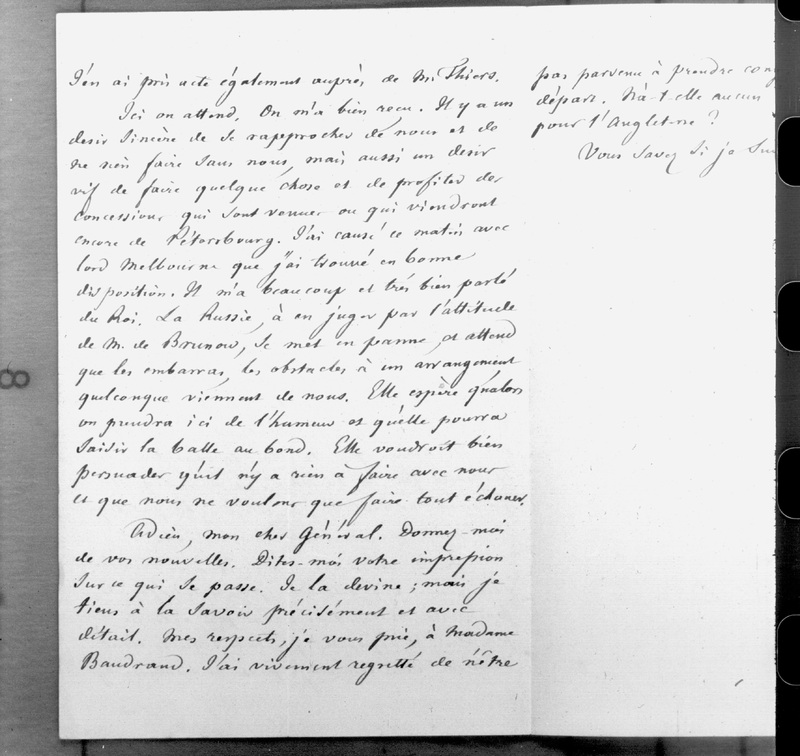 J'en ai pris acte également auprès de Mr Thiers.
Ici on attend. On m'a bien reçu. Il y a un
desir sincère de se rapprocher de nous et de
ne rien faire sans nous, mais aussi un desir
vif de faire quelque chose et de profiter des
concessions qui sont venues ou qui viendront
encore de Pétersbourg. J'ai causé ce matin avec
lord Melbourne que j'ai trouvé en bonne
disposition. Il m'a beaucoup et très bien parlé
du Roi. La Russie, à en juger par l'attitude
de M. de Brunow, se met en panne, et attend
que les embarras, les obstacles à un arrangement
quelconque viennent de nous. Elle espère qu'alors
on prendra ici de l'humeur et qu'elle pourra
saisir la balle au bond. Elle voudroit bien
persuader qu'il n'y a rien à faire avec nous
et que nous ne voulons que faire tout échouer.
Adieu, mon cher Général. Donnez-moi
de vos nouvelles. Dites-moi votre impression
sur ce qui se passe. Je la devine; mais je
tiens à la savoir précisément et avec
détail. Mes respects, je vous prie, à Madame
Baudrand. J'ai vivement regretté de n'être
pas parvenu à prendre
départ. N'a-t-elle aucun
pour l'Anglet-re ?
Vous savez si je
8